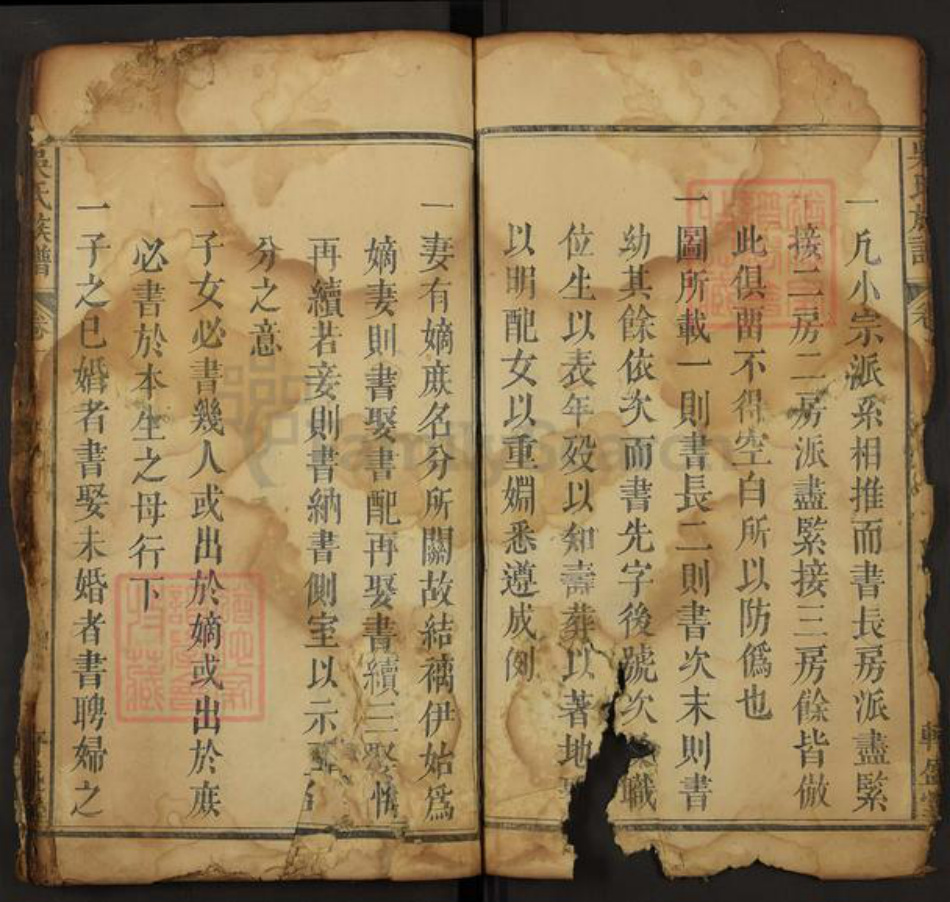 一凡小宗派系相推而書長房派盡緊
接二房二房派盡緊接三房餘皆倣
此俱畱不得空白所以防僞也
一圖所載一則書長二則書次末則書
幼其餘依次而書先字後號次職
位生以表年歿以知壽葬以著地
以明配女以重婣悉遵成例
一妻有嫡庶名分所關故結褵伊始爲
嫡妻則書娶書配再娶書續三娶
再續若妾則書納書側室以示
分之意
一子女必書幾人或出於嫡或出於庶
必書於本生之母行下
一子之已婚者書娶未婚者書聘婦之
吳氏族譜
卷
FamilySearch